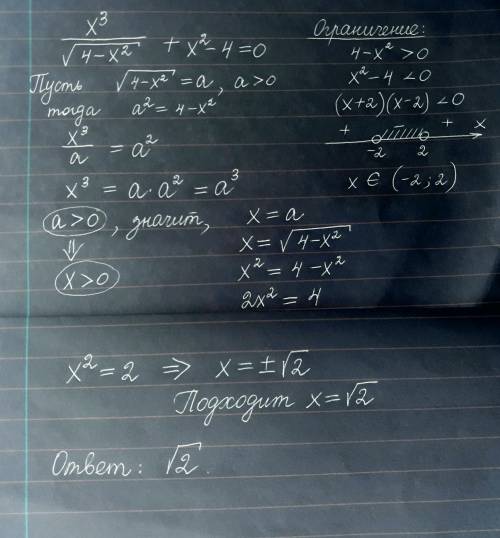 x³/√(4-x²) + x²-4=0
Ограничение:
4-x²>0
x²-4<0
(x+2)(x-2)<0
+ + x
-2 2
x ∈ (-2;2)
Пусть √(4-x²) = a, a>0
тогда a² = 4-x²
x³/a = a²
x³ = a·a² = a³
a>0, значит, x = a
⇓ x = √(4-x²)
x>0 x² = 4-x²
2x² = 4
x² = 2 ⇒ x = ±√2
Подходит x=√2
Ответ: √2.